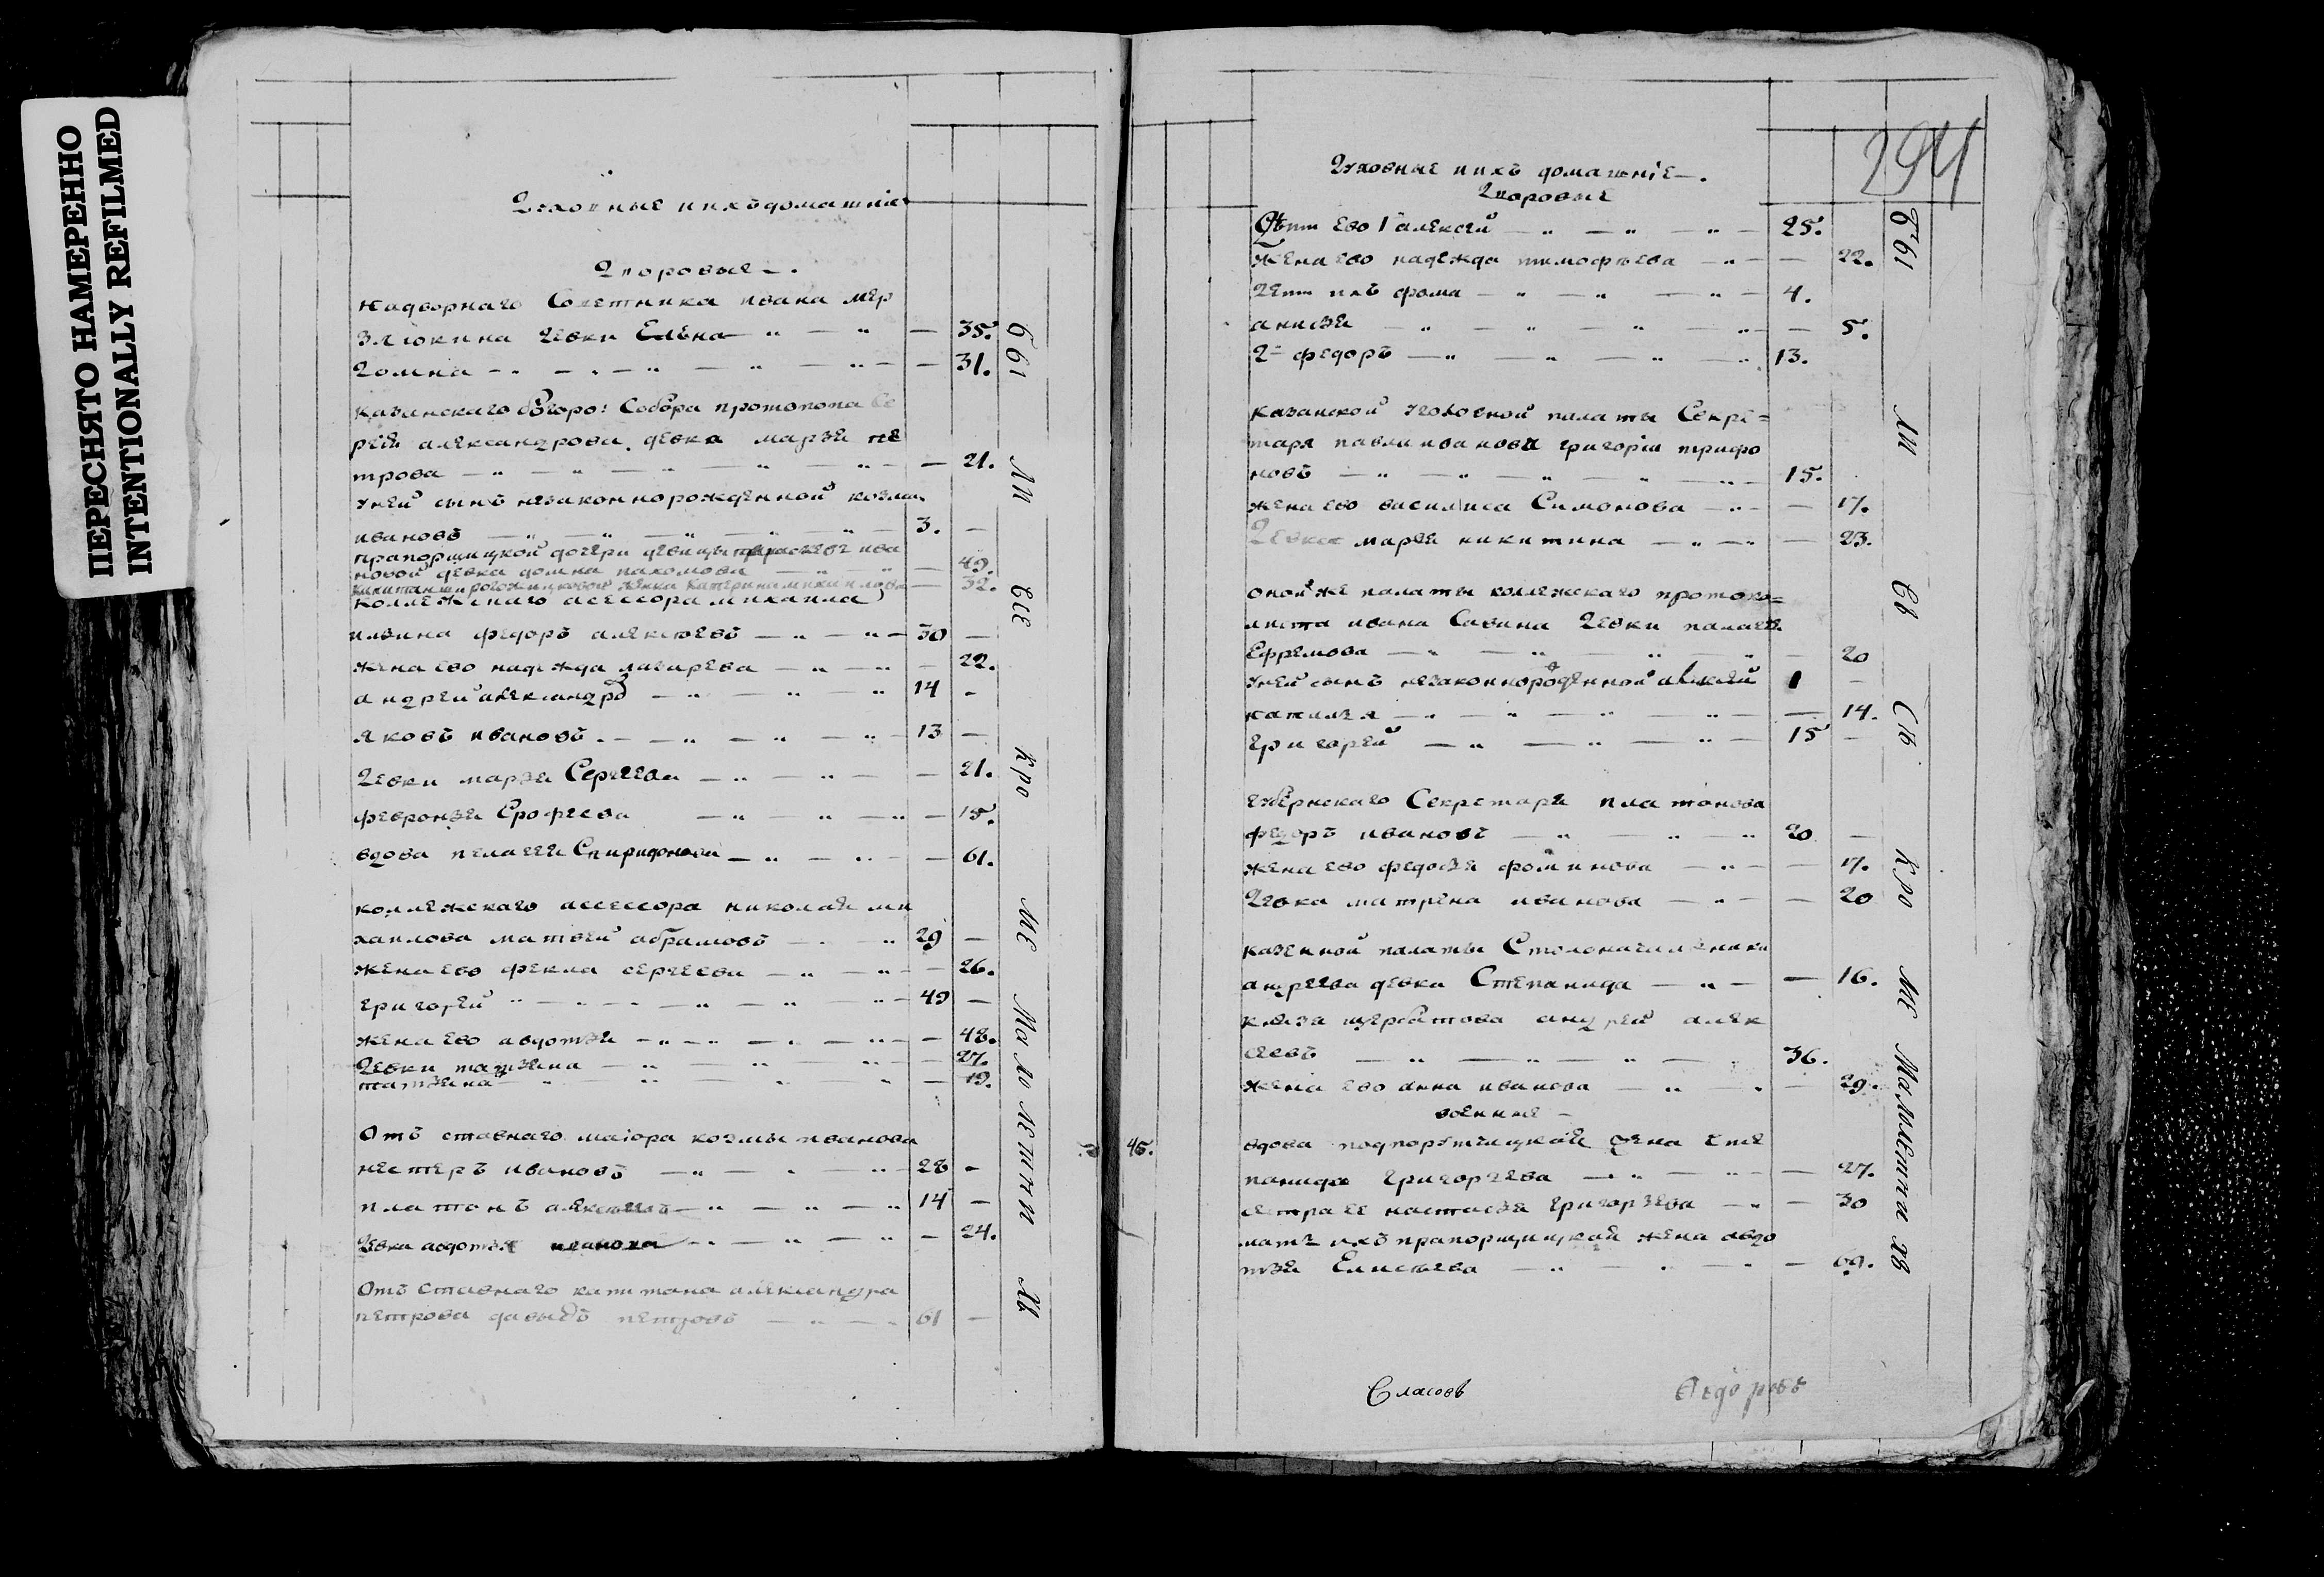 ПЕРЕСНЯТО НАМЕРЕННО
INTENTIONALLY REFILMED
Духовные и ихъ домашніе
Дворовые.
надворнаго Советника ивана мер
злюкина девки Елена — 35.
домна — 31.
казанскаго Собора протопопа Се
ргея александрова девка марья пе
трова — 21.
у ней сынъ незаконнорожденной козма
ивановъ 3. —
прапорщицкой дочери девицы ива
новой девка домна пахомова — 49.
женка катерина — 32.
коллежскаго асессора михаила
ильина федоръ алексѣевъ 30 —
жена ево надежда лазарева — 22.
андрей александровъ 14 —
яковъ ивановъ 13 —
девки марья Сергеева — 21.
февронья Ерофеева — 15.
вдова пелагея Спиридонова — 61.
коллежскаго асессора николая ми
хаилова матвей абрамовъ 29 —
жена ево фекла сергеева — 26.
григорей 49 —
жена ево авдотья — 48.
девки татьяна — 27.
татьяна — 19.
Отъ ставнаго маiора козмы иванова
нестеръ ивановъ 28 —
платонъ алексѣевъ 14 —
девка авдотья иванова — 24.
Отъ ставнаго капитана александра
петрова давыдъ петровъ 61 —
бы
ли
все
кро
ме
мало
летни
хъ
294
Духовные и ихъ домашніе.
Дворовые
Дѣти ево 1 алексей 25.
жена ево надежда тимофѣева — 22.
дети ихъ фома 4.
анисья — 5.
2й федоръ 13.
казанской уголовной палаты Секре=
таря павла иванова григорiй трифо
новъ 15.
жена ево василиса Симонова — 17.
Девка марья никитина — 23.
оной же палаты коллежскаго протоко=
листа ивана Савина девки палагея
Ефремова — 20
у ней сынъ незаконнорожденной алексей 1 —
наталья — 14.
григорей 15 —
губернскаго Секретаря платонова
федоръ ивановъ 20 —
жена ево федосья фоминова — 17.
Девка матрена иванова — 20
казенной палаты Столоначальника
андреева девка Степанида — 16.
князя щербатова андрей алек
сеевъ 36.
жена ево анна иванова — 29.
военные
45. вдова подпорутчицкая жена сте
панида григорьева — 27.
сестра ее настасья григорьева — 30
мать ихъ прапорщицкая жена авдо
тья Елисѣева — 69.
бы
ли
вс
ѣ
кро
ме
малолѣтныхъ
Власовъ Федоровъ